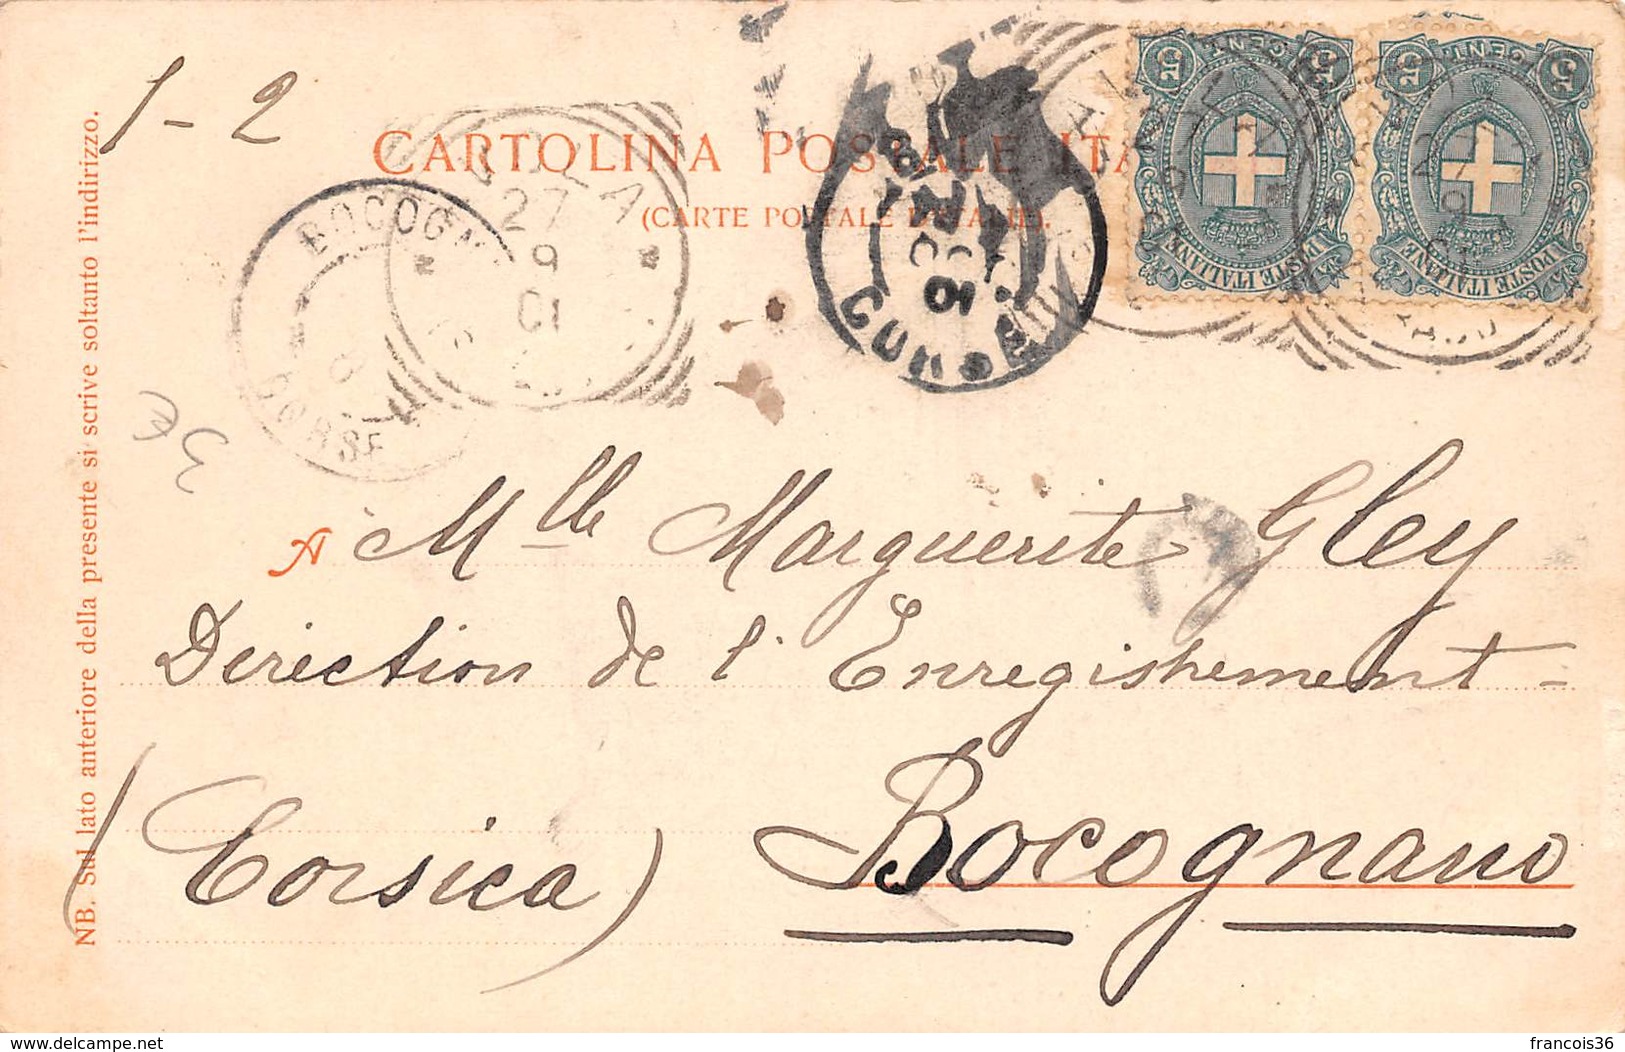 1-2
CARTOLINA POSTALE ITA
(CARTE POSTALE D'ITALIE).
5 CENT. 5
POSTE ITALIANE
5 CENT. 5
POSTE ITALIANE
27
9
01
BOCOGN
CORSE
CORSE
01
NB. Sul lato anteriore della presente si scrive soltanto l'indirizzo.
3€
A Mlle Marguerite Gley
Direction de l'Enregistrement -
Bocognano
(Corsica)
www.delcampe.net
francois36